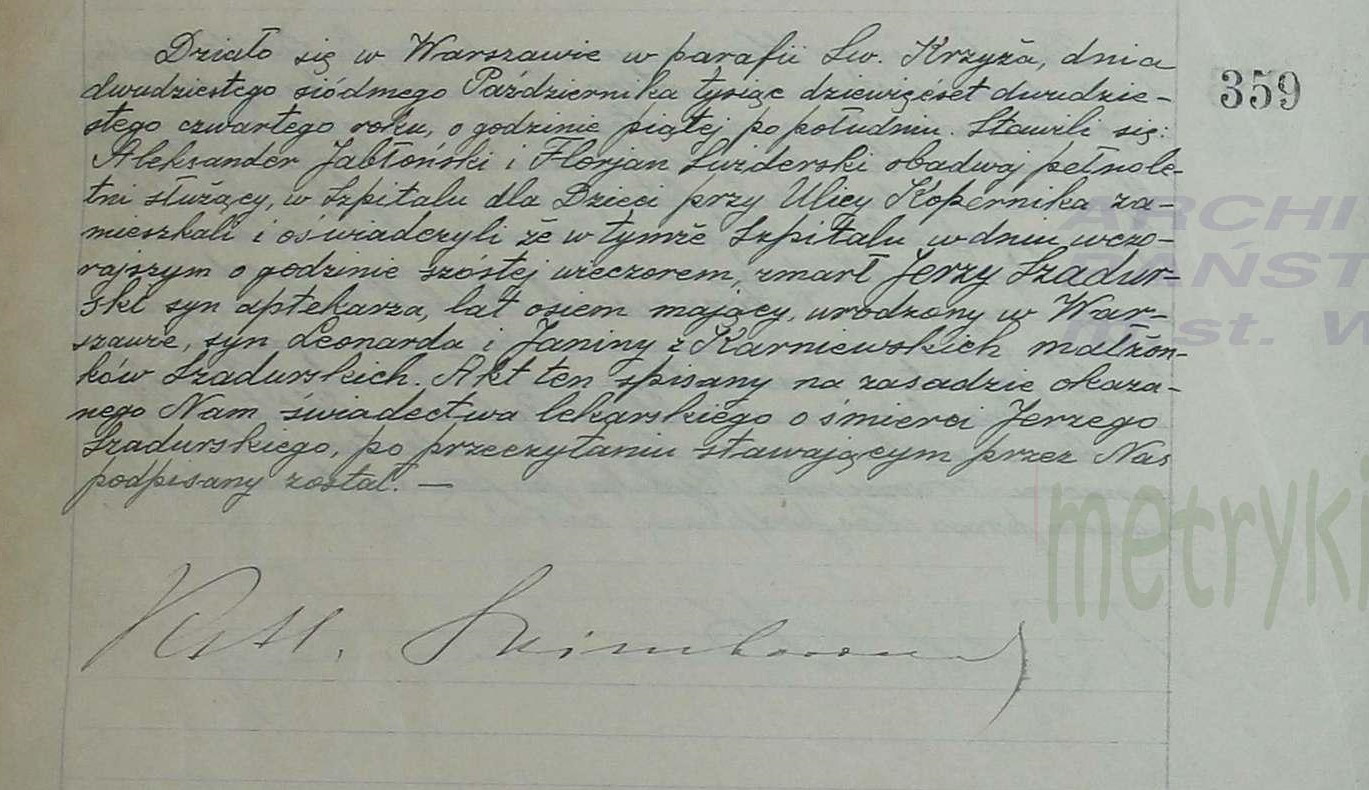 Działo się w Warszawie w parafii Św. Krzyża, dnia
dwudziestego siódmego Października tysiąc dziewięćset dwudzie-
stego czwartego roku, o godzinie piątej po południu. Stawili się:
Aleksander Jabłoński i Florjan Świderski obadwaj pełnole-
tni służący, w Szpitalu dla Dzieci przy Ulicy Kopernika za-
mieszkali i oświadczyli że w tymże Szpitalu w dniu wczo-
rajszym o godzinie szóstej wieczorem, zmarł Jerzy Szadur-
ski syn aptekarza, lat osiem mający, urodzony w War-
szawie, syn Leonarda i Janiny z Karniewskich małżon-
ków Szadurskich. Akt ten spisany na zasadzie okaza-
nego Nam świadectwa lekarskiego o śmierci Jerzego
Szadurskiego, po przeczytaniu stawającym przez Nas
podpisany został. —
359
ARCHI
PAŃST
m.st. W
metryki